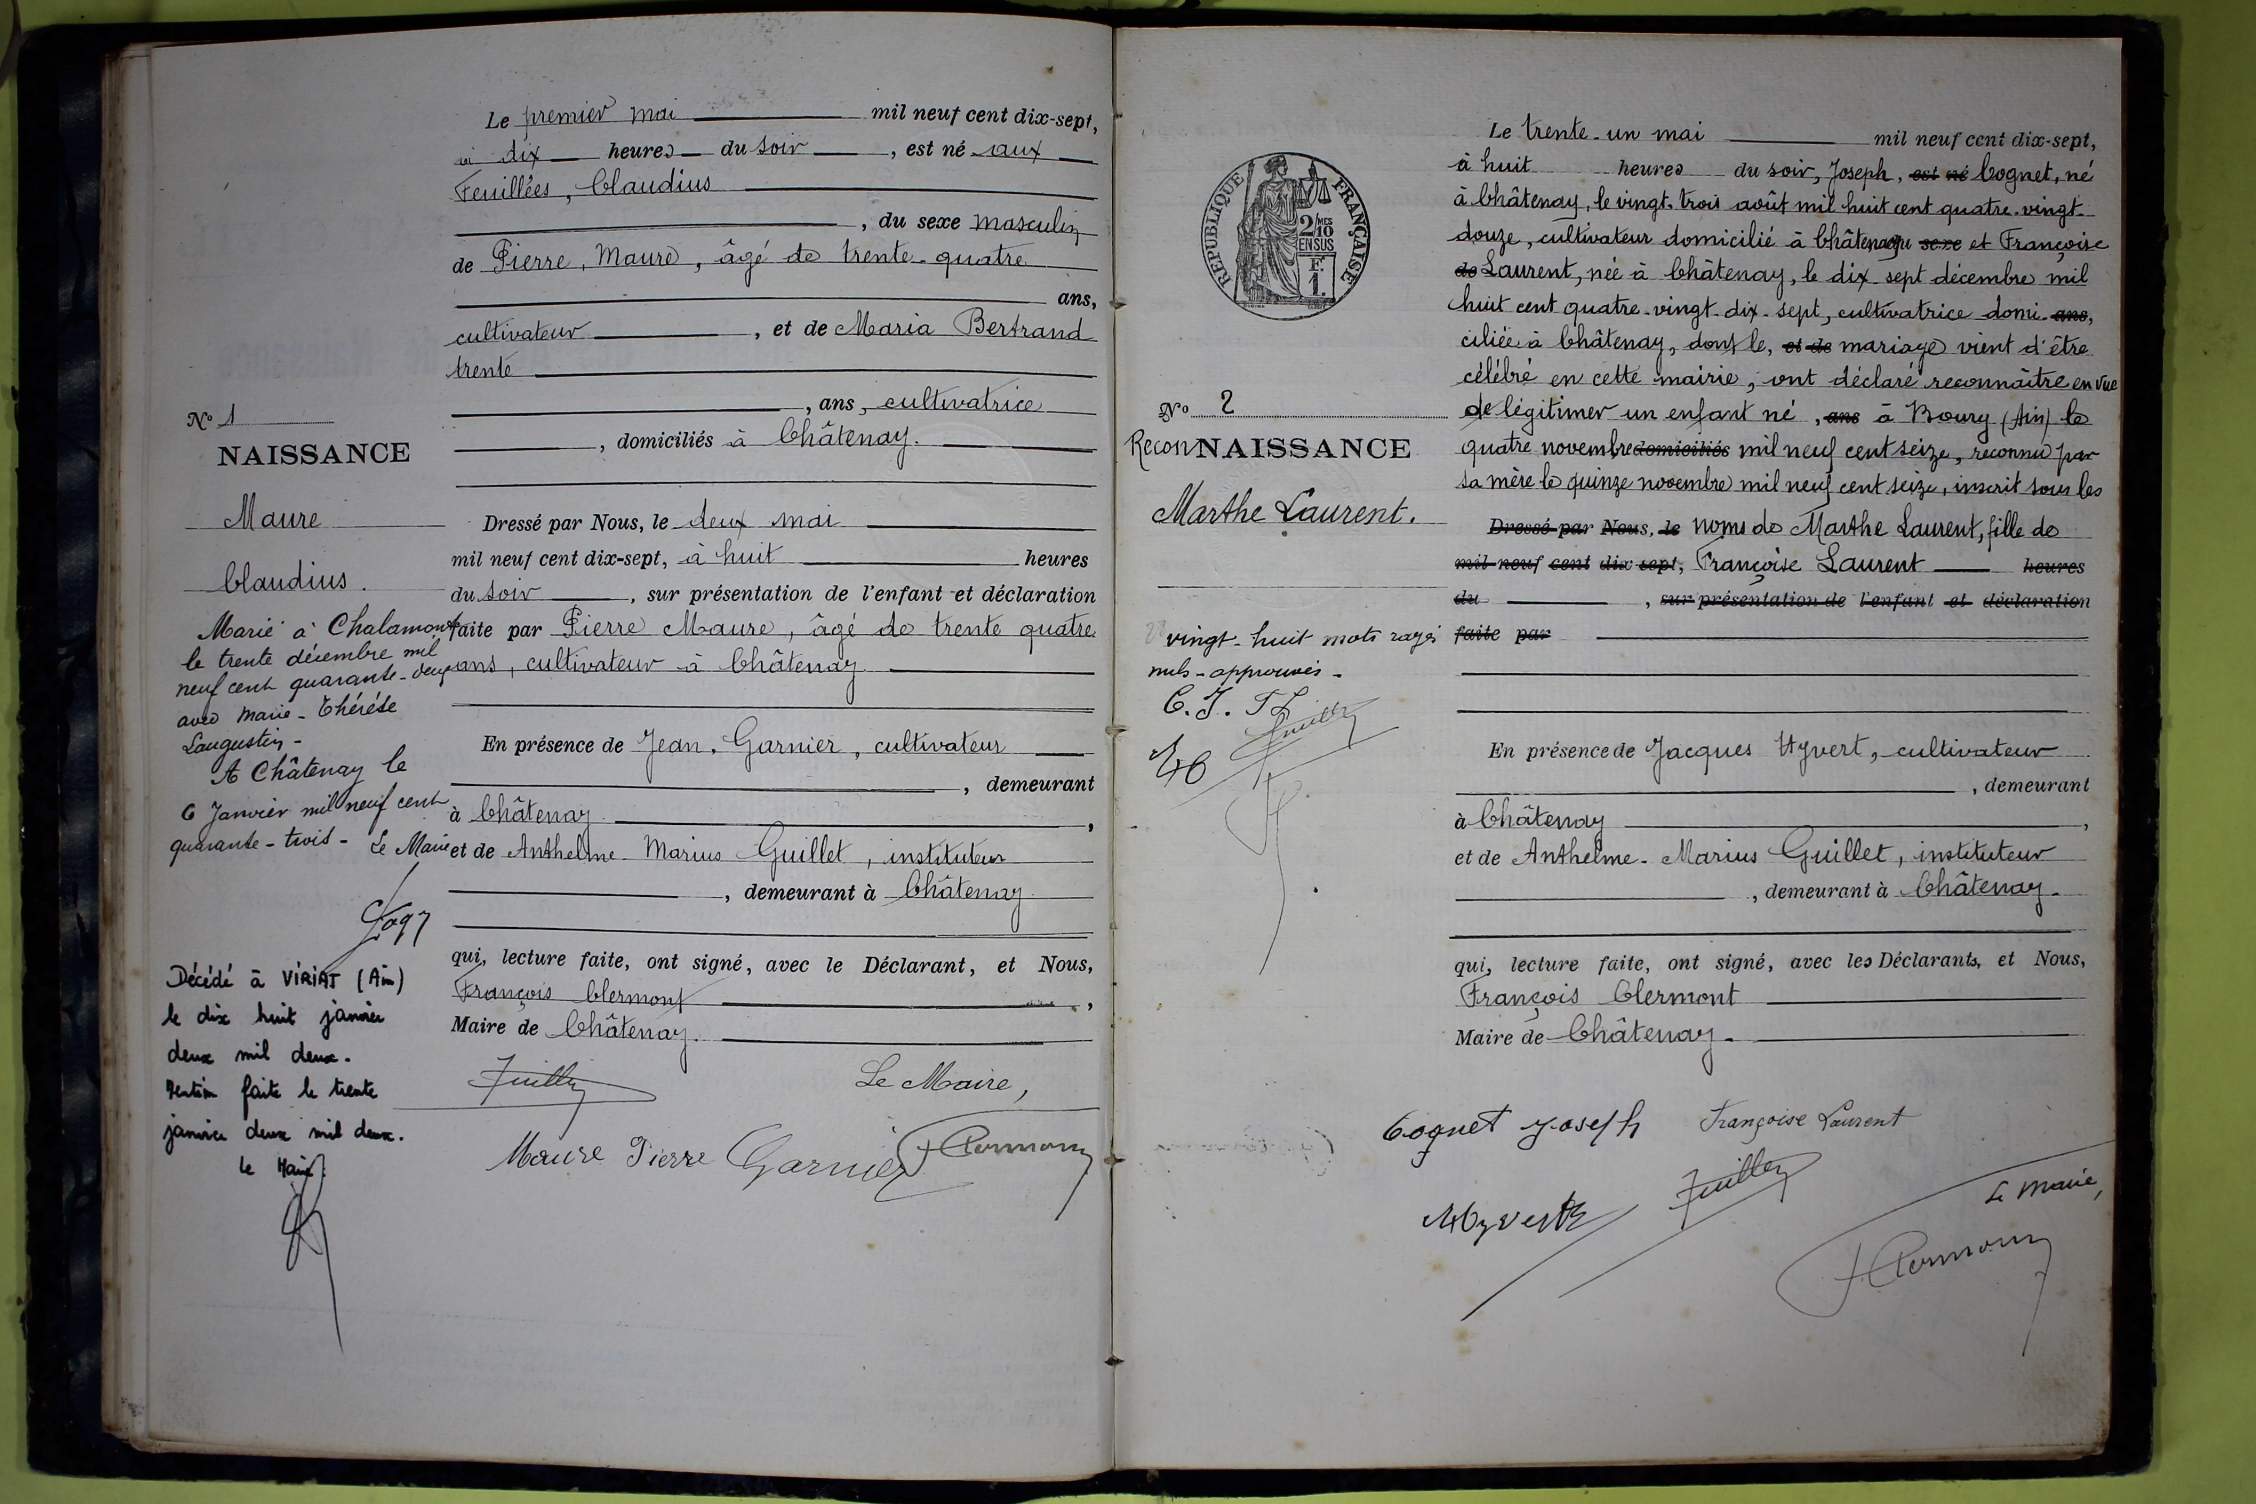 Le premier mai mil neuf cent dix-sept,
à dix heures du soir, est né aux
Feuillées, Claudius
, du sexe masculin
de Pierre, Maure, âgé de trente-quatre
ans,
cultivateur, et de Maria Bertrand
trente
, ans, cultivatrice
, domiciliés à Châtenay.
No 1
NAISSANCE
Maure
Claudius.
Dressé par Nous, le deux mai
mil neuf cent dix-sept, à huit heures
du soir, sur présentation de l'enfant et déclaration
faite par Pierre Maure, âgé de trente quatre
ans, cultivateur à Châtenay
En présence de Jean, Garnier, cultivateur
, demeurant
à Châtenay,
et de Anthelme-Marius Guillet, instituteur
, demeurant à Châtenay
qui, lecture faite, ont signé, avec le Déclarant, et Nous,
François Clermont,
Maire de Châtenay.
Le Maire,
Maure Pierre Garnier
Marié à Chalamont
le trente décembre mil
neuf cent quarante-deux
avec Marie-Thérése
Laugustin-
A Châtenay le
6 Janvier mil neuf cent
quarante-trois- Le Maire
Décédé à VIRIAT (Ain)
le dix huit janvier
deux mil deux.
Mention faite le trente
janvier deux mil deux.
Le Maire
RÉPUBLIQUE FRANÇAISE
2/10 MES
EN SUS
F.
1.
No 2
ReconNAISSANCE
Marthe Laurent.
vingt-huit mots rayés
nuls-approuvés-
C.J. F L
Le trente-un mai mil neuf cent dix-sept,
à huit heures du soir, Joseph, est né Cognet, né
à Châtenay, le vingt-trois août mil huit cent quatre-vingt-
douze, cultivateur domicilié à Châtenay du sexe et Françoise
de Laurent, née à Châtenay, le dix sept décembre mil
huit cent quatre-vingt-dix-sept, cultivatrice domi- ans,
ciliée à Châtenay, dont le, et de mariage vient d'être
célébré en cette mairie, ont déclaré reconnaître en vue
de légitimer un enfant né, ans à Bourg (Ain) le
quatre novembre domiciliés mil neuf cent seize, reconnu par
sa mère le quinze novembre mil neuf cent seize, inscrit sous les
Dressé par Nous, le noms de Marthe Laurent, fille de
mil neuf cent dix sept, Françoise Laurent heures
du, sur présentation de l'enfant et déclaration
faite par
En présence de Jacques Hyvert, cultivateur
, demeurant
à Châtenay,
et de Anthelme-Marius Guillet, instituteur
, demeurant à Châtenay-
qui, lecture faite, ont signé, avec les Déclarants, et Nous,
François Clermont
Maire de Châtenay-
Cognet Joseph Françoise Laurent
Le Maire,